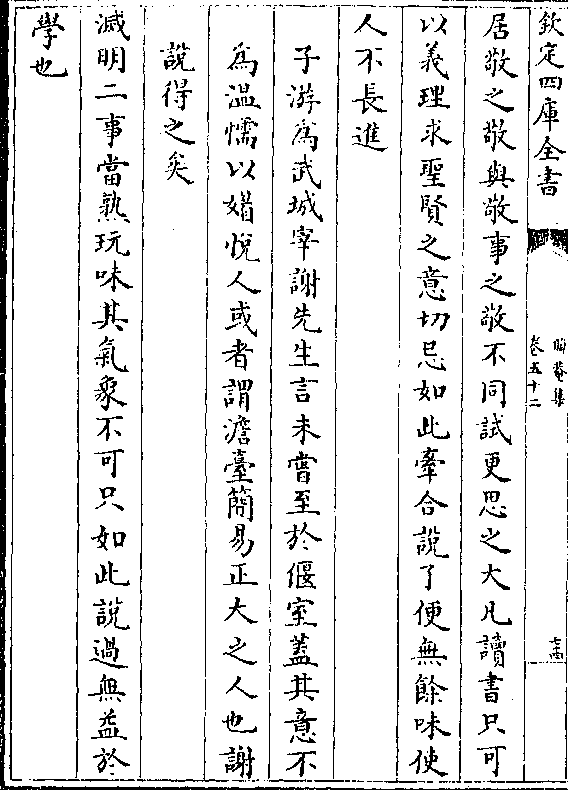 欽定四庫全書
晦菴集
卷五十二
七四
居敬之敬與敬事之敬不同試更思之大凡讀書只可
以義理求聖賢之意切忌如此牽合說了便無餘味使
人不長進
子游為武城宰謝先生言未嘗至於偃室蓋其意不
為溫懦以媚悅人或者謂澹臺簡易正大之人也謝
說得之矣
滅明二事當熟玩味其氣象不可只如此說過無益於
學也